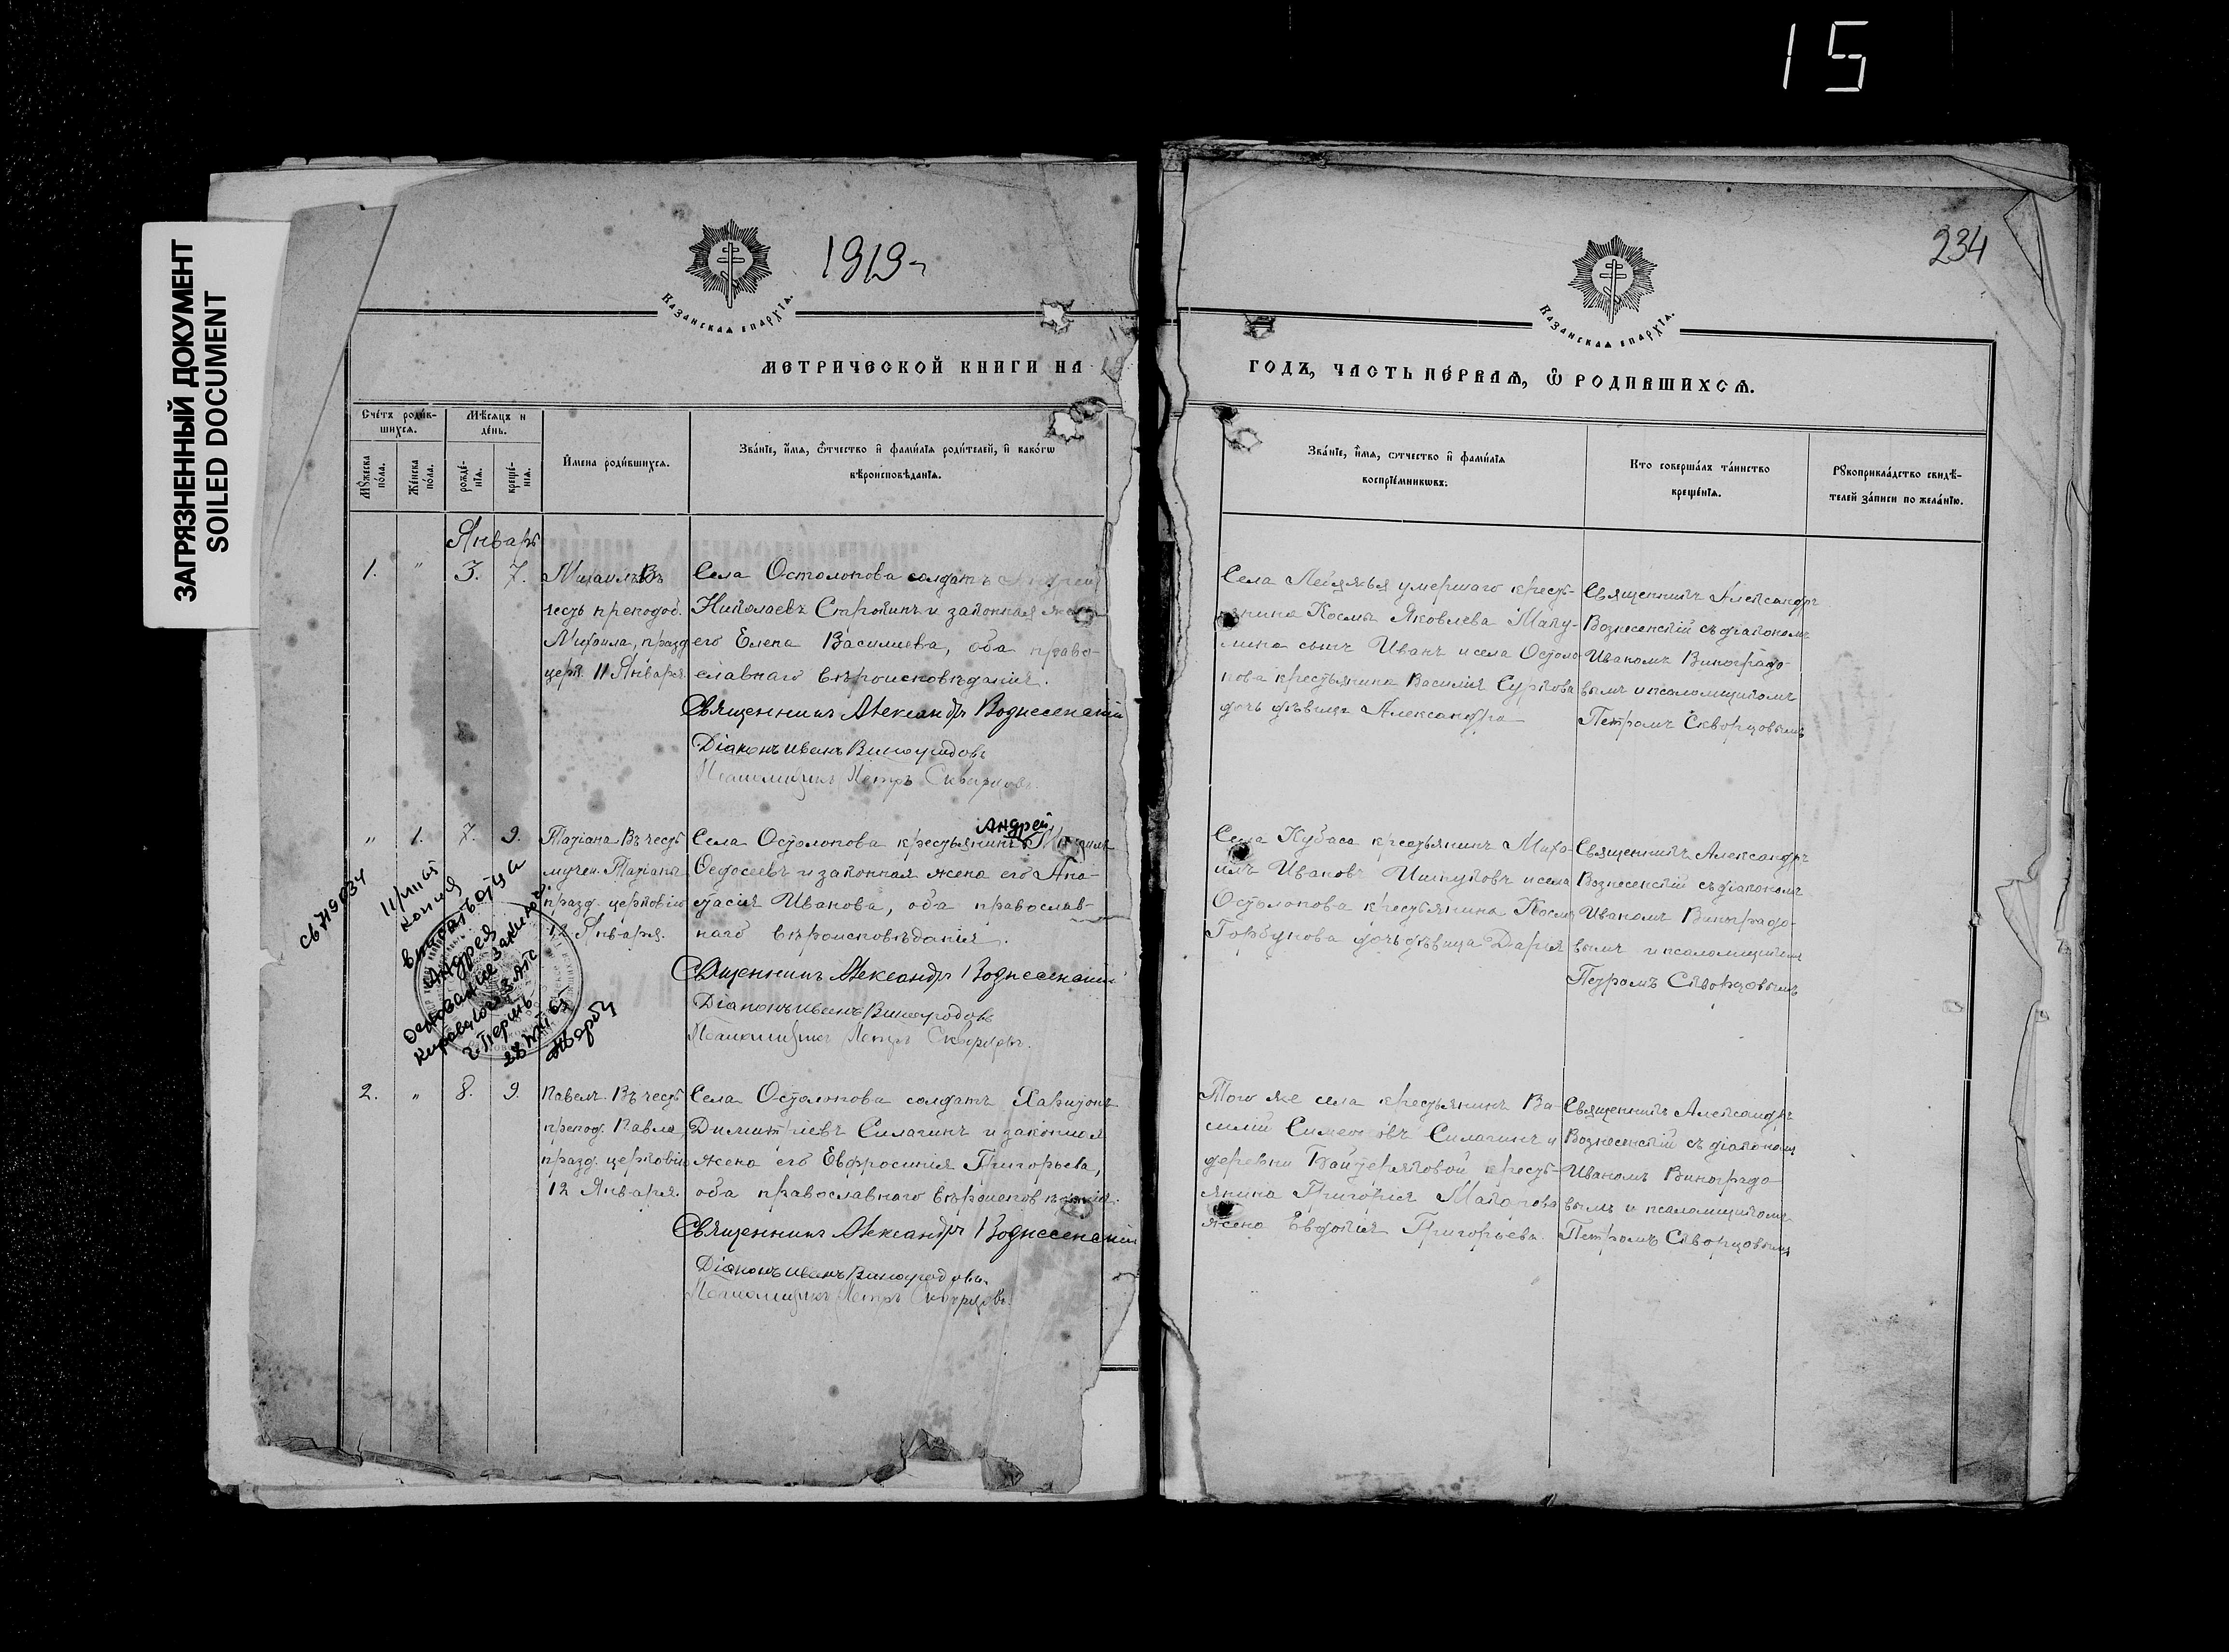 15
ЗАГРЯЗНЕННЫЙ ДОКУМЕНТ
SOILED DOCUMENT
1919
Казанская епархїа.
МЕТРИЧЕСКОЙ КНИГИ НА 19
Счétъ родив-
шихся.
Мѣсяцъ и
день.
Мꙋжеска
пóла.
Жéнска
пóла.
рождé-
нїѧ.
крещé-
нїѧ.
И҆мена роди́вшихся.
Звáнїе, и҆́мѧ, ѻ҆́тчество и҆ фами́лїѧ роди́телей, и҆ какóгѡ
вѣроисповѣ́данїѧ.
Январь
1. " 3. 7.
Михаилъ Въ
честь преподоб.
Михаила, празд
церк. 11 Января.
Села Остолопова солдатъ Андрей
Николаевъ Строкинъ и законная жена
его Елена Васильева, оба право-
славнаго вѣроисповѣданія.
Священникъ Александръ Вознесенскій
Діаконъ Иванъ Виноградовъ
Псаломщикъ Петръ Скворцовъ.
" 1. 7. 9.
Татіана Въ честь
мучен. Татіаны
празд. церковію
12 Января.
Андрей
Села Остолопова крестьянинъ
Ѳедосеевъ и законная жена его Ана-
стасія Иванова, оба православ-
наго вѣроисповѣданія.
Священникъ Александръ Вознесенскій
Діаконъ Иванъ Виноградовъ
Псаломщикъ Петръ Скворцовъ.
11/VIII 65
копия
имя отца
Андрея
основание заключ.
Кировского ЗАГС
г. Пермь
2. " 8. 9.
Павелъ Въ честь
препод. Павла,
празд. церковію
12 Января.
Села Остолопова солдатъ Харитонъ
Димитріевъ Силагинъ и законная
жена его Евфросинія Григорьева,
оба православнаго вѣроисповѣданія.
Священникъ Александръ Вознесенскій
Діаконъ Иванъ Виноградовъ.
Псаломщикъ Петръ Скворцовъ.
234
Казанская епархїа.
ГОДЪ, ЧАСТЬ ПЕ́РВАѦ, Ѽ РОДИВШИХСѦ.
Звáнїе, и҆́мѧ, ѻтчество и҆ фами́лїѧ
воспрїéмникѡвъ.
Кто совершáлъ тáинство
крещéнїѧ.
Рꙋкоприклáдство свидѣ́-
телей зáписи по желáнїю.
Села умершаго кресть-
янина Космы Яковлева
сынъ Иванъ и села Остоло-
пова крестьянина Василія Суркова
дочь дѣвица Александра
Священникъ Александръ
Вознесенскій съ діакономъ
Иваномъ Виноградо-
вымъ и псаломщикомъ
Петромъ Скворцовымъ
Села Кубаса крестьянинъ Миха-
илъ Ивановъ и села
Остолопова крестьянина Космы
Горбунова дочь дѣвица Дарья
Священникъ Александръ
Вознесенскій съ діакономъ
Иваномъ Виноградо-
вымъ и псаломщикомъ
Петромъ Скворцовымъ
Того же села крестьянинъ Ва-
силій Симеоновъ Силагинъ и
деревни Байтеряковой кресть-
янина Григорія Майорова
жена Евдокія Григорьева.
Священникъ Александръ
Вознесенскій съ діакономъ
Иваномъ Виноградо-
вымъ и псаломщикомъ
Петромъ Скворцовымъ